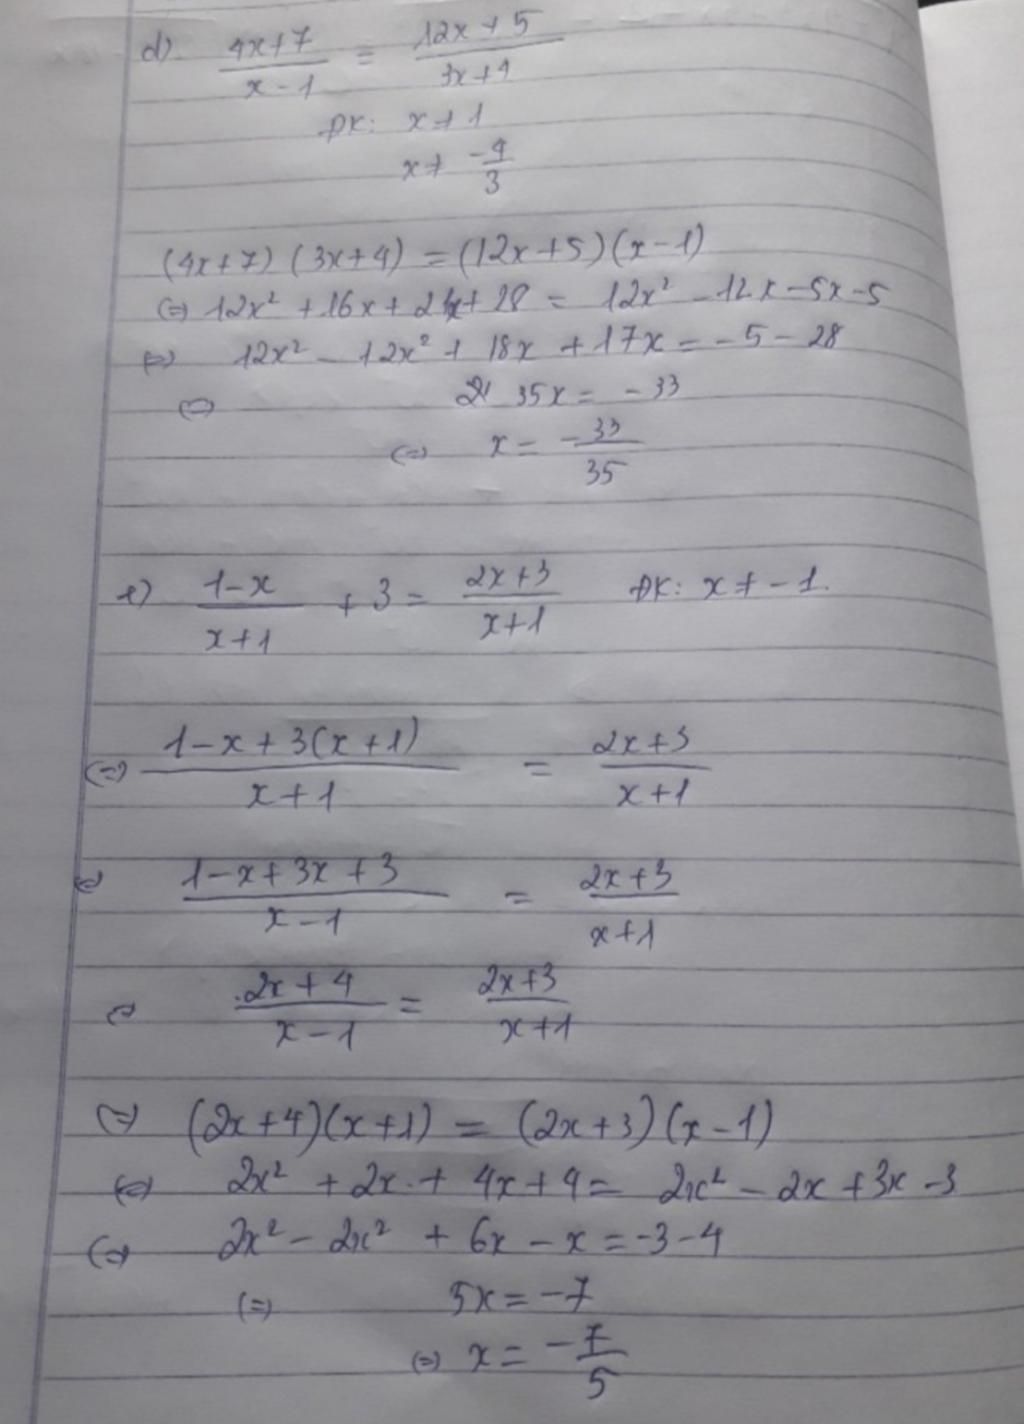 d) (4x+7)/(x-1) = (12x+5)/(3x+4)
ĐK: x ≠ 1
x ≠ -4/3
(4x+7)(3x+4) = (12x+5)(x-1)
(=) 12x² + 16x + 21x + 28 = 12x² - 12x - 5x - 5
(=) 12x² - 12x² + 18x + 17x = -5 - 28
(=) 35x = -33
(=) x = -33/35
e) (1-x)/(x+1) + 3 = (2x+3)/(x+1) ĐK: x ≠ -1.
(=) (1-x+3(x+1))/(x+1) = (2x+3)/(x+1)
(=) (1-x+3x+3)/(x-1) = (2x+3)/(x+1)
(=) (2x+4)/(x-1) = (2x+3)/(x+1)
(=) (2x+4)(x+1) = (2x+3)(x-1)
(=) 2x² + 2x + 4x + 4 = 2x² - 2x + 3x - 3
(=) 2x² - 2x² + 6x - x = -3 - 4
(=) 5x = -7
(=) x = -7/5